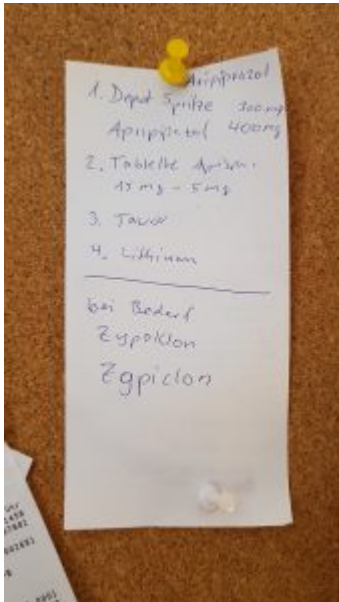 Aripiprazol
1. Depot Spritze 300mg
Apripipratol 400mg
2. Tablette Apripi.
15 mg - 5mg
3. Tavor
4. Lithium
bei Bedarf
Zypoklon
Zgpiclon